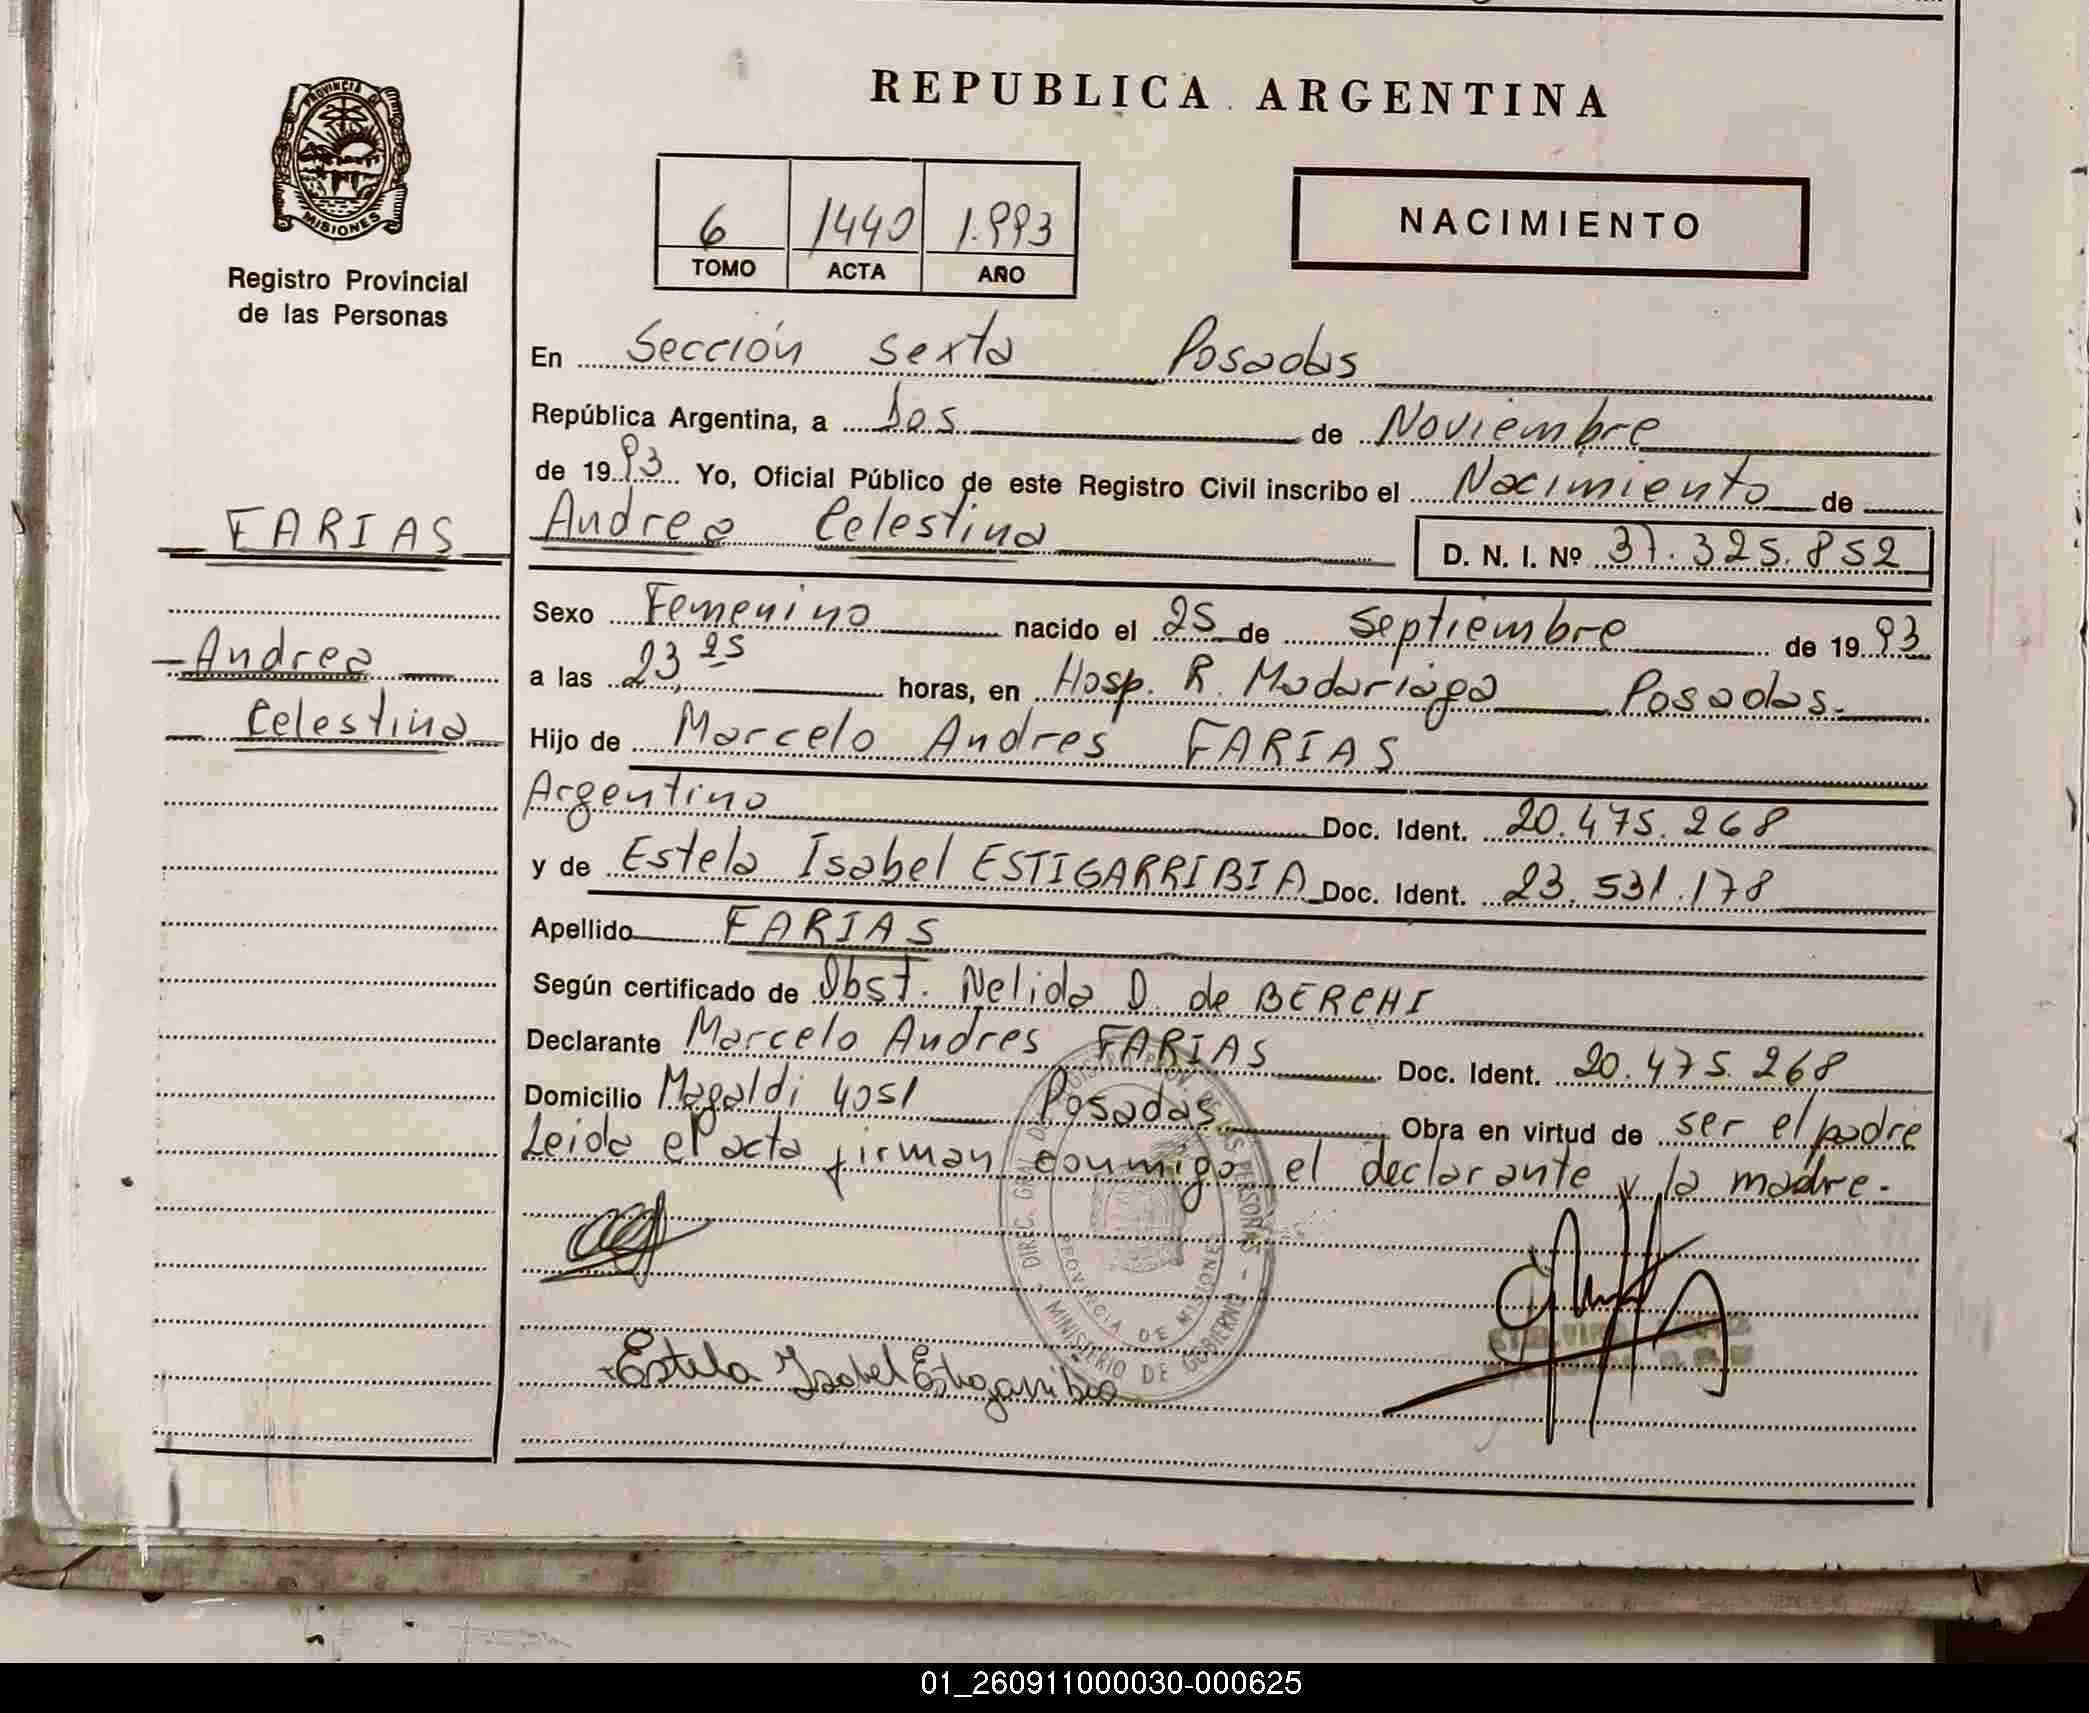 REPUBLICA ARGENTINA
PROVINCIA DE
MISIONES
Registro Provincial
de las Personas
6 1440 1.993
TOMO ACTA AÑO
NACIMIENTO
En Sección sexta Posadas
República Argentina, a Dos de Noviembre
de 1993 Yo, Oficial Público de este Registro Civil inscribo el Nacimiento de
FARIAS
Andrea Celestina D. N. I. Nº 37.325.852
Sexo Femenino nacido el 25 de Septiembre de 1993
Andrea
a las 23,25 horas, en Hosp. R. Madariaga Posadas.
Celestina
Hijo de Marcelo Andres FARIAS
Argentino Doc. Ident. 20.475.268
y de Estela Isabel ESTIGARRIBIA Doc. Ident. 23.531.178
Apellido FARIAS
Según certificado de Obst. Nelida D. de BERCHI
Declarante Marcelo Andres FARIAS Doc. Ident. 20.475.268
Domicilio Magaldi 4051 Posadas Obra en virtud de ser el padre
Leida el acta firman conmigo el declarante y la madre.
PROVINCIA DE MISIONES
MINISTERIO DE GOBIERNO
Estela Isabel Estigarribia
01_260911000030-000625